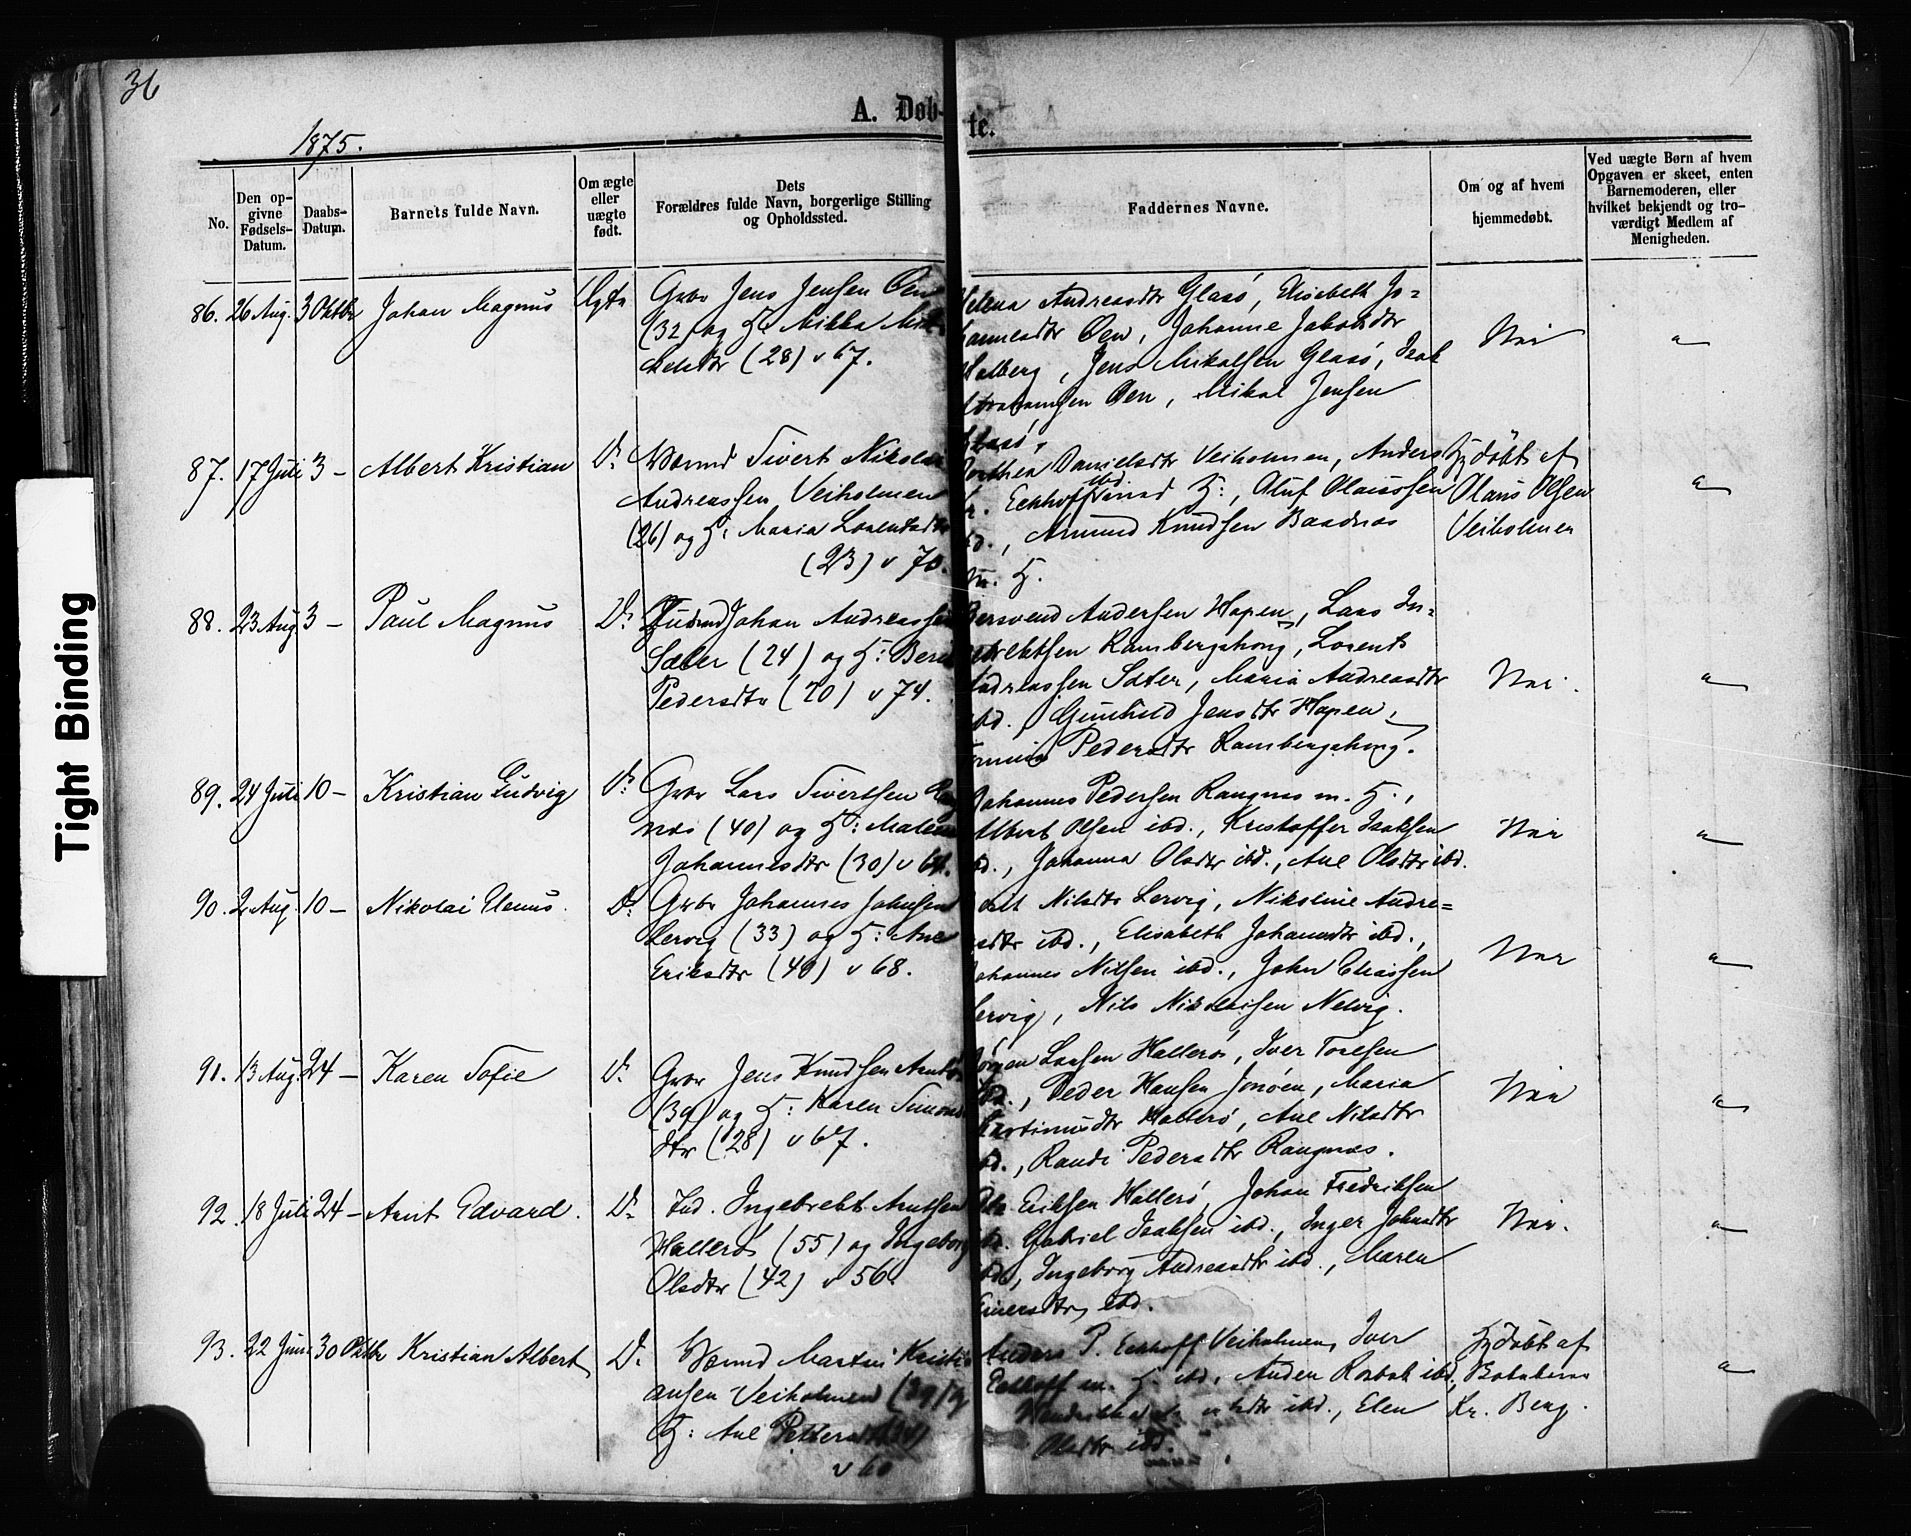 36
A. Døb-
te.
1875.
No.
Den op-
givne
Fødsels-
Datum.
Daabs-
Datum.
Barnets fulde Navn.
Om ægte
eller
uægte
født.
Dets
Forældres fulde Navn, borgerlige Stilling
og Opholdssted.
Faddernes Navne.
Om og af hvem
hjemmedøbt.
Ved uægte Børn af hvem
Opgaven er skeet, enten
Barnemoderen, eller
hvilket bekjendt og tro-
værdigt Medlem af
Menigheden.
86. 26 Aug. 3 Oktbr Johan Magnus Ægte Gbr Jens Jensen Øen
(32) og H: Mikka Mik
kelsdtr (28) v 67.
Helena Andreasdtr Glasø, Elisebeth Jo-
hannesdtr Øen, Johanne Jakobsdtr
Halberg, Jens Mikalsen Glasø, Isak
Abrahamsen Øen, Mikal Jensen
Glasø.
Nei
"
87. 17 Juli 3 — Albert Kristian D. Sivert Nikolai
Andreassen Veiholmen
(26) og H: Maria Lorentsdtr
(23) v 70.
Dorthea Danielsdtr Veiholmen, Anders
Eckhoff ibd. H:, Oluf Olaussen
ibd., Amund Knudsen Baadnes
m. H.
Hjdøbt af
Olaus Olsen
Veiholmen
"
88. 23 Aug 3 — Paul Magnus D. Johan Andreassen
Sæter (24) og H: Bere
Pedersdtr (20) v 74.
Bersvend Andersen Hopen, Lars In-
gebrektsen Ramberghaug, Lorents
Andreassen Sæter, Maria Andreasdtr
ibd., Gunhild Jensdtr Hopen,
Pedersdtr Ramberghaug.
Nei.
"
89. 24 Juli 10 — Kristian Ludvig D. Gbr Lars Sivertsen Rang
næs (40) og H: Malena
Johannesdtr (30) v 64.
Johannes Pedersen Rangnæs m. H.,
Albert Olsen ibd., Kristoffer Isaksen
ibd., Johanna Olsdtr ibd., Ane Olsdtr ibd.
Nei
"
90. 2 Aug. 10 — Nikolai Elenus. D. Gbr Johannes Johnsen
Lervig (33) og H: Ane
Eriksdtr (40) v 68.
Berit Nilsdtr Lervig, Nikoline Andre-
asdtr ibd., Elisabeth Johansdtr ibd.,
Johannes Nilsen ibd., John Eliassen
Lervig, Nils Nikolaisen Nelvig.
Nei
"
91. 13 Aug. 24 — Karen Sofie D. Gbr Jens Knudsen
(39) og H: Karen Simons
dtr (28) v 67.
Jørgen Larsen Hallerø, Iver Toresen
ibd., Peder Hansen Jonøen, Maria
Martinusdtr Hallerø, Ane Nilsdtr
ibd., Randi Pedersdtr Rangnæs.
Nei
"
92. 18 Juli 24 — Arnt Edvard. D. Ind. Ingebrekt Arntsen
Hallerø (55) og Ingeborg
Olsdtr (42) v 56.
Eriksen Hallerø, Johan Fredriksen
ibd. Gabriel Isaksen ibd., Inger Johnsdtr
ibd., Ingeborg Andreasdtr ibd., Maren
Einersdtr, ibd.
Nei.
"
93. 22 Juni 30 Oktbr Kristian Albert D. Martin Kristi
ansen Veiholmen (39) og
H: Ane Pettersdtr (34)
v 60
Anders P. Eckhoff Veiholmen, Iver
Eckhoff m. H. ibd. Anders Rosbak ibd,
ibd., Elen
Olsdtr ibd.
Hjdøbt af
Kr. Berg.
"
Tight Binding